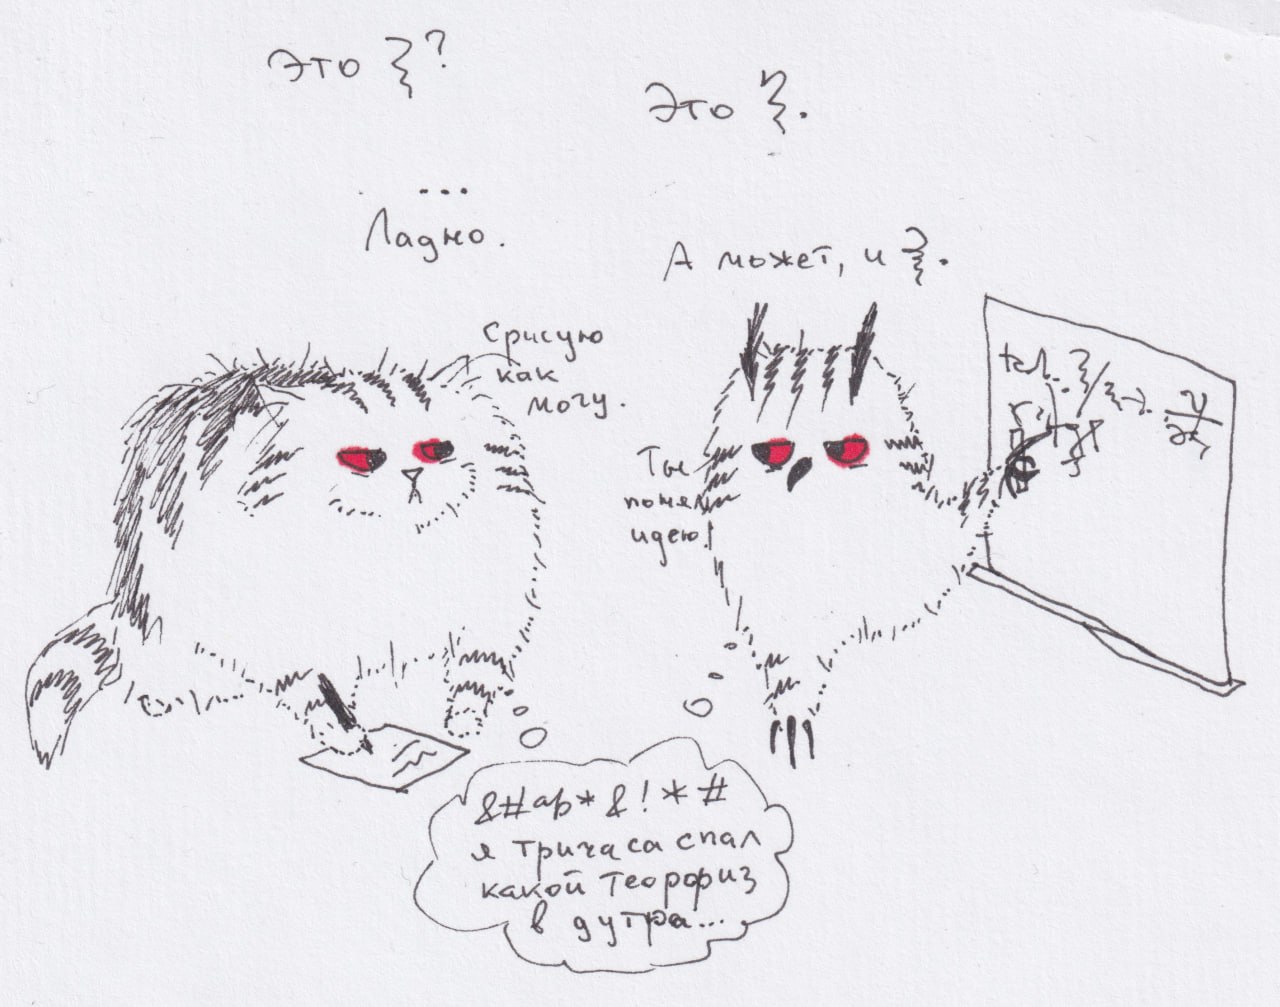 Это ξ?
Это ξ.
...
Ладно.
А может, и ξ.
Срисую
как
могу.
Ты
понял
идею!
&#ар*&!*#
я три часа спал
какой теорфиз
в 9 утра...